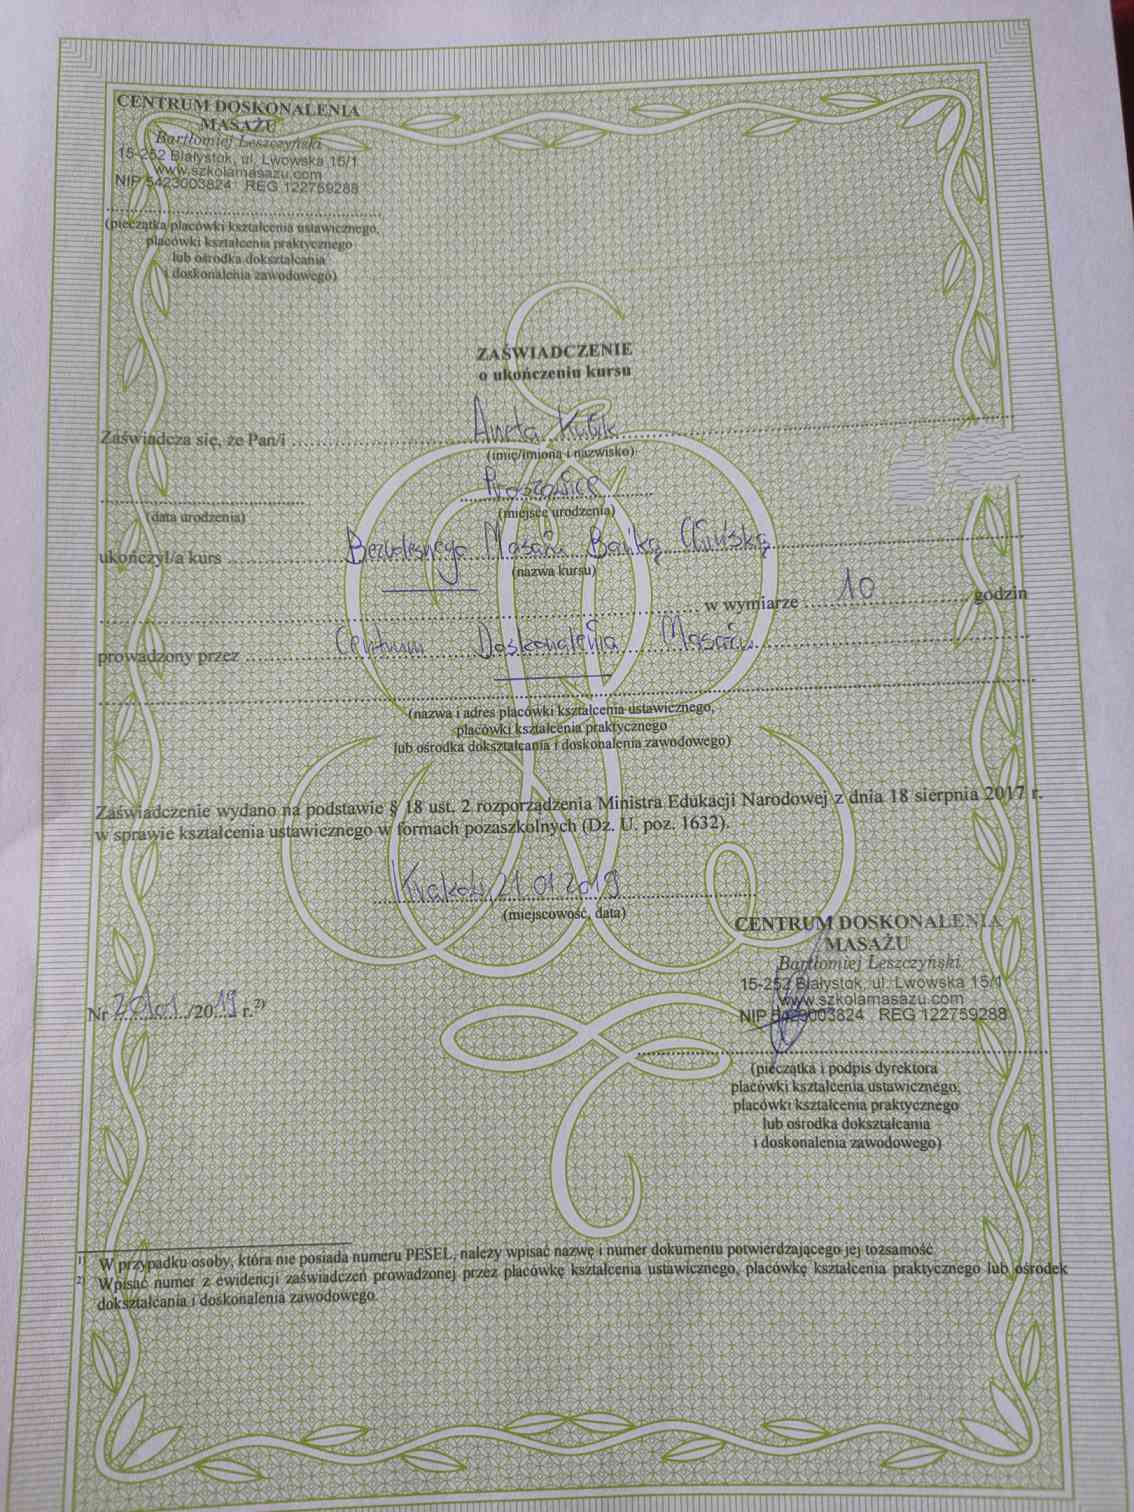 CENTRUM DOSKONALENIA
MASAŻU
Bartłomiej Leszczyński
15-252 Białystok, ul. Lwowska 15/1
www.szkolamasazu.com
NIP 5423003824 REG 122759288
(pieczątka placówki kształcenia ustawicznego,
placówki kształcenia praktycznego
lub ośrodka dokształcania
i doskonalenia zawodowego)
ZAŚWIADCZENIE
o ukończeniu kursu
Zaświadcza się, że Pan/i Aneta
(imię/imiona i nazwisko)
Proszowice
(data urodzenia) (miejsce urodzenia)
ukończył/a kurs Bezbolesnego Masażu Bańką Chińską
(nazwa kursu)
w wymiarze 10 godzin
prowadzony przez Centrum Doskonalenia Masażu
(nazwa i adres placówki kształcenia ustawicznego,
placówki kształcenia praktycznego
lub ośrodka dokształcania i doskonalenia zawodowego)
Zaświadczenie wydano na podstawie § 18 ust. 2 rozporządzenia Ministra Edukacji Narodowej z dnia 18 sierpnia 2017 r.
w sprawie kształcenia ustawicznego w formach pozaszkolnych (Dz. U. poz. 1632).
Kraków, 21 01 2019
(miejscowość, data)
CENTRUM DOSKONALENIA
MASAŻU
Bartłomiej Leszczyński
15-252 Białystok, ul. Lwowska 15/1
www.szkolamasazu.com
NIP 5423003824 REG 122759288
Nr /2019 r.²⁾
(pieczątka i podpis dyrektora
placówki kształcenia ustawicznego,
placówki kształcenia praktycznego
lub ośrodka dokształcania
i doskonalenia zawodowego)
¹⁾ W przypadku osoby, która nie posiada numeru PESEL, należy wpisać nazwę i numer dokumentu potwierdzającego jej tożsamość
²⁾ Wpisać numer z ewidencji zaświadczeń prowadzonej przez placówkę kształcenia ustawicznego, placówkę kształcenia praktycznego lub ośrodek
dokształcania i doskonalenia zawodowego.